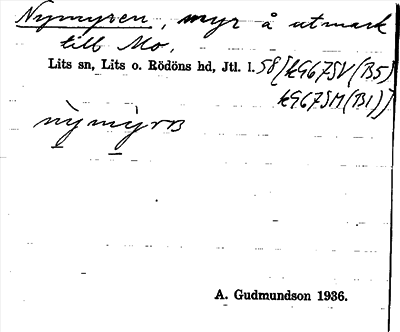 Nymyren, myr å utmark
till Mo.
Lits sn, Lits o. Rödöns hd, Jtl. l. 58 [k967SV(B5)
k967SM(B1)]
nỳmỳrʙ
A. Gudmundson 1936.